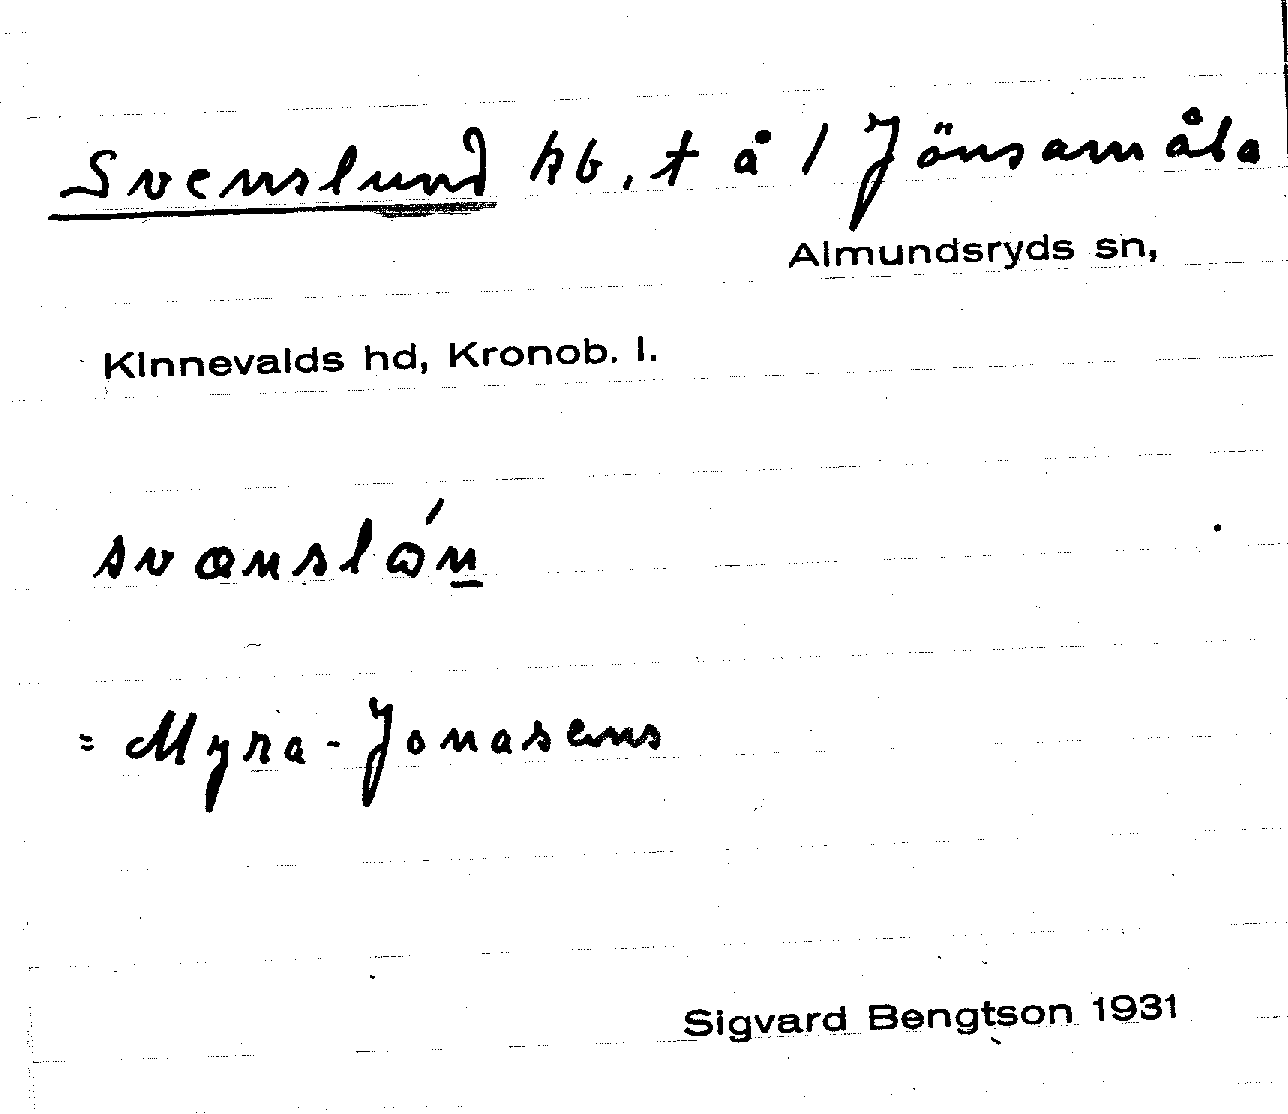 Svenslund hb. t å 1 Jönsamåla
Almundsryds sn,
Kinnevalds hd, Kronob. l.
svænslón
= Myra-Jonasens
Sigvard Bengtson 1931